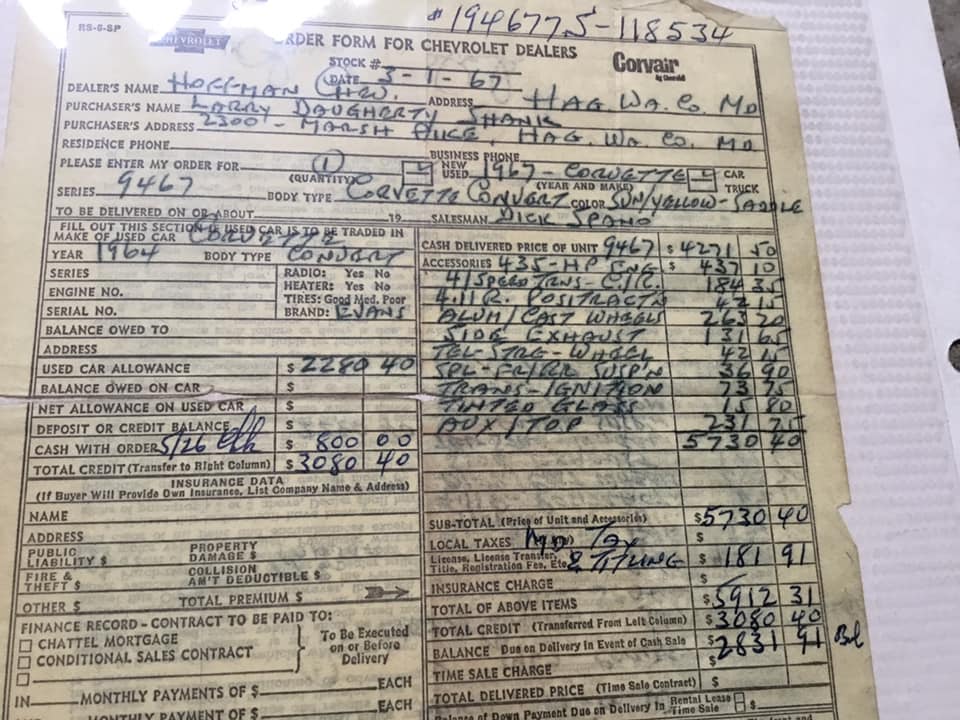 # 194677S-118534
RS-6-SP
CHEVROLET ORDER FORM FOR CHEVROLET DEALERS Corvair by Chevrolet
STOCK #
DATE 3-1-67
DEALER'S NAME HOFFMAN CHEV. ADDRESS HAG. WA. CO. MD
PURCHASER'S NAME LARRY DAUGHERTY SHANK
PURCHASER'S ADDRESS 2300 - MARSH PIKE, HAG. WA. CO. MD.
RESIDENCE PHONE BUSINESS PHONE
PLEASE ENTER MY ORDER FOR (1) (QUANTITY) NEW USED 1967-CORVETTE (YEAR AND MAKE) CAR TRUCK
SERIES 9467 BODY TYPE CORVETTE CONVERT COLOR SUN/YELLOW-SADDLE
TO BE DELIVERED ON OR ABOUT 19 SALESMAN DICK SPANO
FILL OUT THIS SECTION IF USED CAR IS TO BE TRADED IN
MAKE OF USED CAR CORVETTE
YEAR 1964 BODY TYPE CONVERT
SERIES RADIO: Yes No
HEATER: Yes No
ENGINE NO. TIRES: Good Med. Poor
SERIAL NO. BRAND: EVANS
BALANCE OWED TO
ADDRESS
USED CAR ALLOWANCE $ 2280 40
BALANCE OWED ON CAR $
NET ALLOWANCE ON USED CAR $
DEPOSIT OR CREDIT BALANCE $
CASH WITH ORDER 5/26 $ 800 00
TOTAL CREDIT (Transfer to Right Column) $ 3080 40
INSURANCE DATA
(If Buyer Will Provide Own Insurance, List Company Name & Address)
NAME
ADDRESS
PUBLIC LIABILITY $ PROPERTY DAMAGE $
FIRE & THEFT $ COLLISION AM'T DEDUCTIBLE $
OTHER $ TOTAL PREMIUM $
FINANCE RECORD - CONTRACT TO BE PAID TO:
CHATTEL MORTGAGE
CONDITIONAL SALES CONTRACT
To Be Executed on or Before Delivery
IN MONTHLY PAYMENTS OF $ EACH
MONTHLY PAYMENT OF $ EACH
CASH DELIVERED PRICE OF UNIT 9467 $ 4271 50
ACCESSORIES 435-HP ENG $ 437 10
4/SPEED TRNS-C/R. 184 35
4.11 R. POSITRACTN 42 15
ALUM/CAST WHEELS 263 20
SIDE EXHAUST 131 65
TEL-STRG-WHEEL 42 15
SPL-FR/RR SUSP'N 36 90
TRANS-IGNITION 73 75
TINTED GLASS 15 80
AUX/TOP 231 75
5730 40
SUB-TOTAL (Price of Unit and Accessories) $ 5730 40
LOCAL TAXES Tax $
License, License Transfer, Title, Registration Fee, Etc. & TITLING $ 181 91
INSURANCE CHARGE $
TOTAL OF ABOVE ITEMS $ 5912 31
TOTAL CREDIT (Transferred From Left Column) $ 3080 40
BALANCE Due on Delivery in Event of Cash Sale $ 2831 91 Bal
TIME SALE CHARGE $
TOTAL DELIVERED PRICE (Time Sale Contract) $
Balance of Down Payment Due on Delivery in Rental Lease Time Sale $